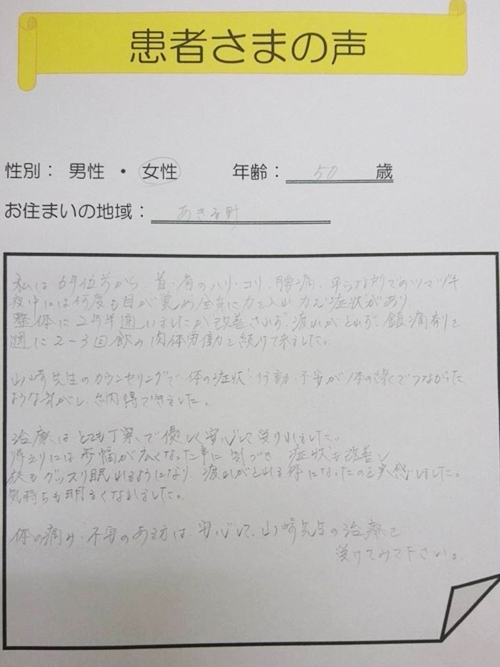 患者さまの声
性別： 男性 ・ 女性　年齢： 50 歳
お住まいの地域： あきる野
私は 5年位前から、首・肩のハリ・コリ、腰痛、平らな所でのツマヅキ
夜中には何度も目が覚め 全身に力を入れ 症状があり
整体に2年半通いましたが改善されず、疲れがとれず、鎮痛剤を
週に2～3回飲み肉体労働を続けて来ました。
山崎先生のカウンセリングで 体の症状・行動・不安が1本の線でつながった
ような気がし、納得できました。
治療はとても丁寧で優しく安心して受けれました。
帰りには歩幅が広くなった事に気づき 症状も改善し
夜もグッスリ眠れるようになり 疲れがとれる体になったのを実感しました。
気持ちも明るくなれました。
体の痛み・不安のある方は 安心して、山崎先生の治療を
受けてみて下さい。